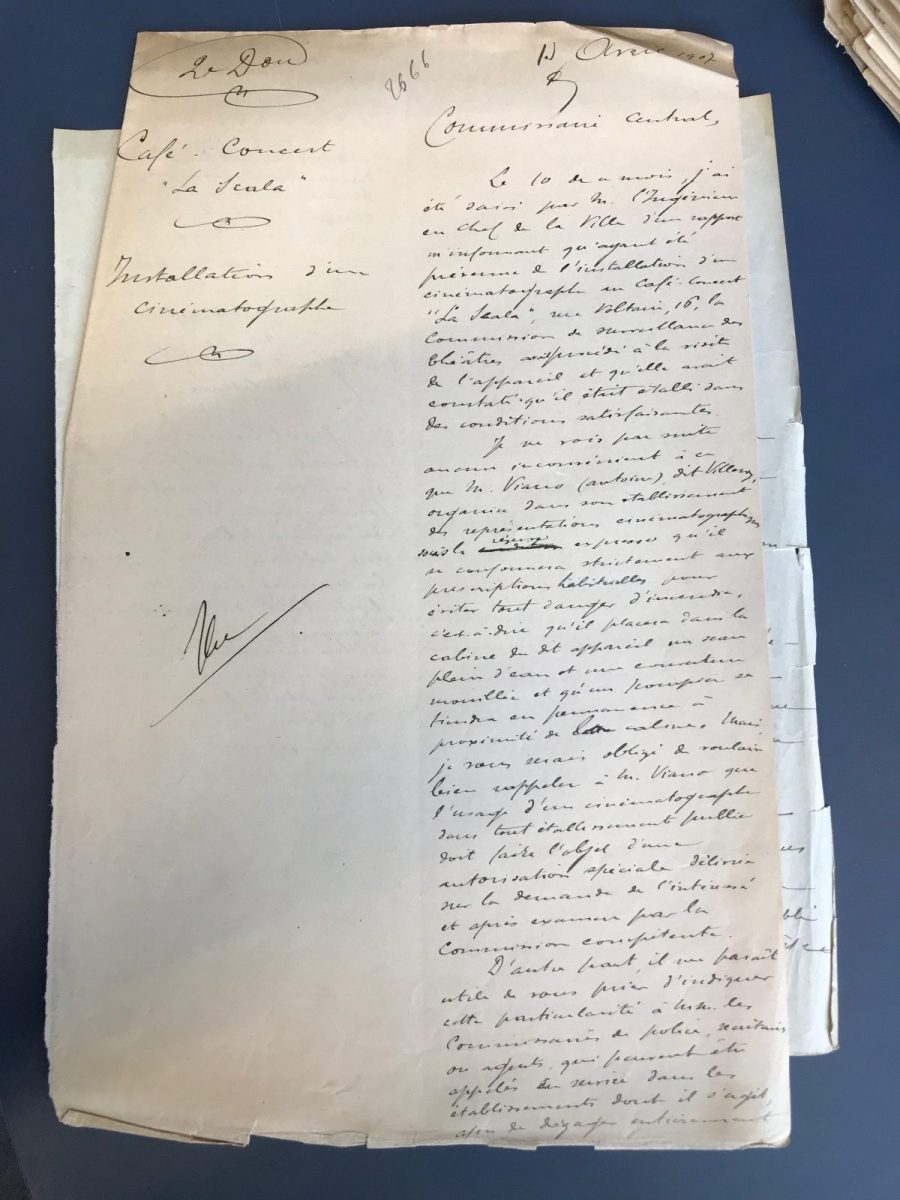 2e Don
2666
Avril 1907
Café-Concert
"La Scala"
Installation d'un
cinématographe
Commissaire Central,
Le 10 de ce mois, j'ai
été saisi par M. l'Ingénieur
en Chef de la Ville d'un rapport
m'informant qu'ayant été
prévenue de l'installation d'un
cinématographe au Café-Concert
"La Scala", rue Voltaire, 16, la
Commission de surveillance des
théâtres procédé à la visite
de l'appareil et qu'elle avait
constaté qu'il était établi dans
des conditions satisfaisantes.
Je ne vois par suite
aucun inconvénient à ce
que M. Viano (Antoine), dit
organise dans son établissement
des représentations cinématographiques
sous la réserve expresse qu'il
se conformera strictement aux
prescriptions habituelles pour
éviter tout danger d'incendie,
c'est-à-dire qu'il placera dans la
cabine du dit appareil un seau
plein d'eau et une couverture
mouillée et qu'un pompier se
tiendra en permanence à
proximité de cabine. Mais
je vous serais obligé de vouloir
bien rappeler à M. Viano que
l'usage d'un cinématographe
dans tout établissement public
doit faire l'objet d'une
autorisation spéciale délivrée
sur la demande de l'intéressé
et après examen par la
Commission compétente.
D'autre part, il me paraît
utile de vous prier d'indiquer
cette particularité à MM. les
Commissaires de police, secrétaires
ou agents, qui peuvent être
appelés en service dans les
établissements dont il s'agit,
afin de dégager entièrement